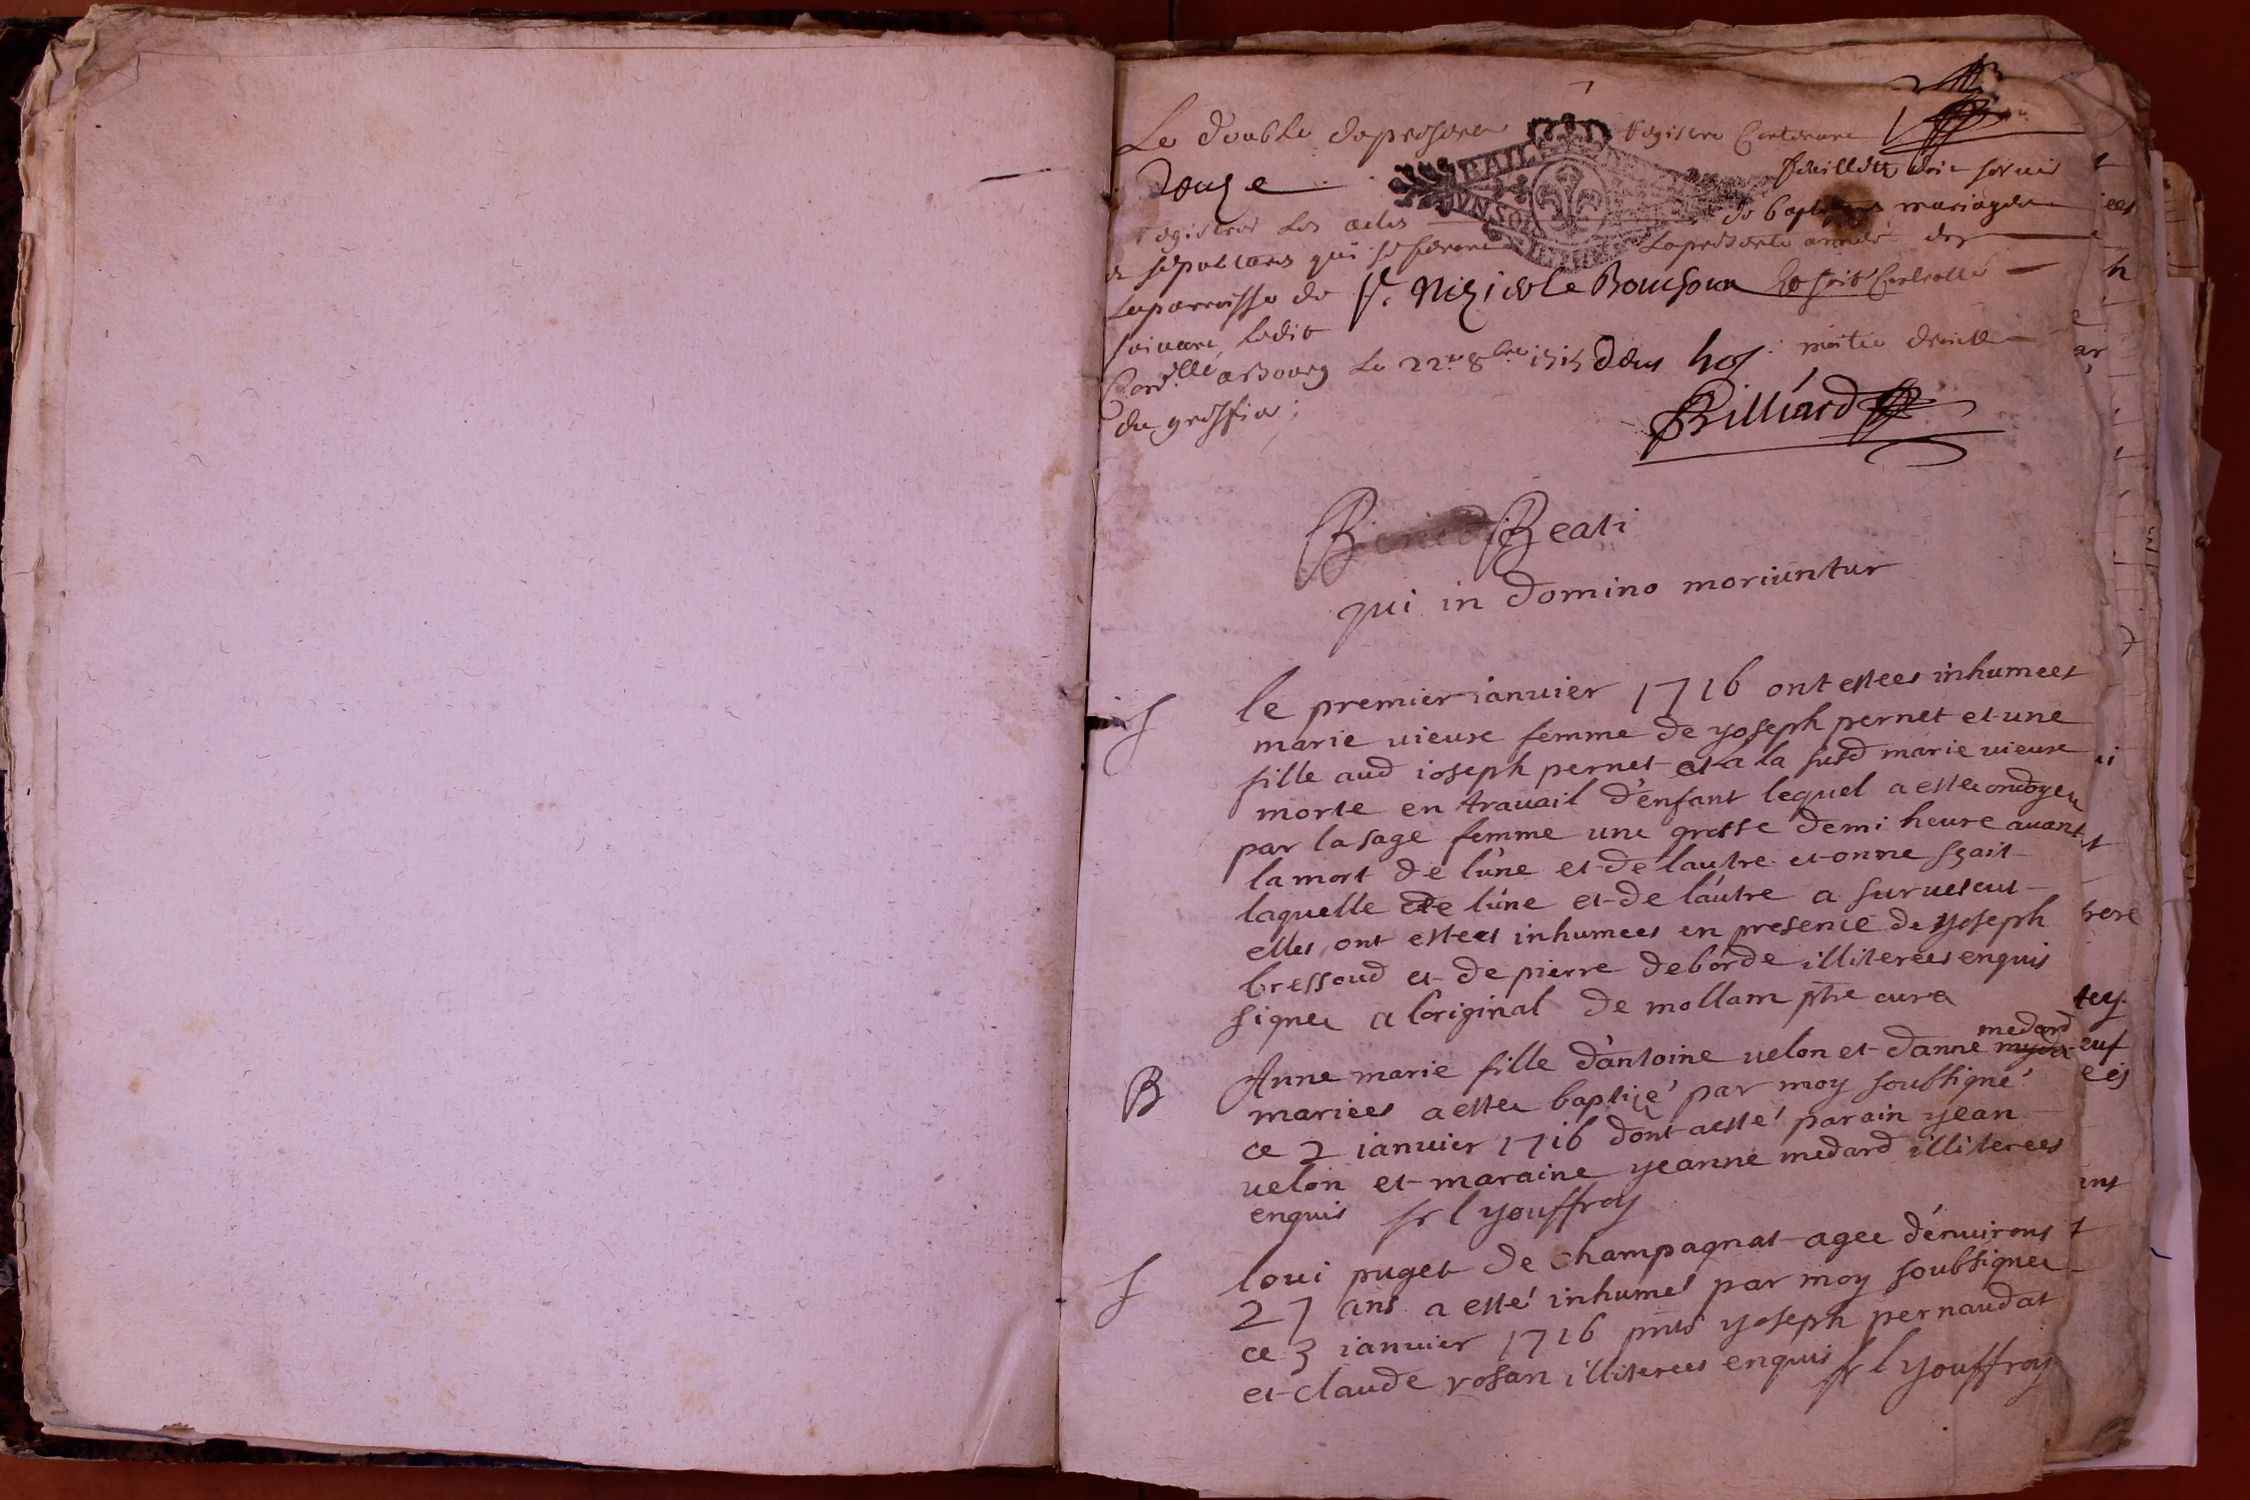 Le double du present Registre Contenant
Douze feuillets doit servir
registrer les actes de baptesmes mariages
et sepultures qui se feront la presente année des
la parroisse de St. Nizier le Bouchoux
suivant ledit
le 22e 8bre 1715 deux moitié
du greffier
Billiard
BAIL
Beati
qui in Domino moriuntur
S le premier ianvier 1716 ont estees inhumees
marie vieux femme de yoseph pernet et une
fille aud ioseph pernet et a la susd marie vieux
morte en travail d'enfant lequel a estee ondoyee
par la sage femme une grosse demi heure avant
la mort de l'une et de lautre et on ne sçait
laquelle de l'une et de lautre a survescut
elles ont estees inhumees en presence de yoseph
bressoud et de pierre deborde illiterees enquis
signee a loriginal de mollam ptre cure
medard
B Anne marie fille d'antoine velon et danne
mariees a estee baptizé par moy soubsigné
ce 2 ianvier 1716 dont a esté parain yean
velon et maraine yeanne medard illiterees
enquis fr l youffroy
S loui puget de champagnat agee d'envirous
27 ans a esté inhumé par moy soubsignee
ce 3 ianvier 1716 pnts yoseph pernaudat
et claude rosan illiterees enquis fr l youffroy